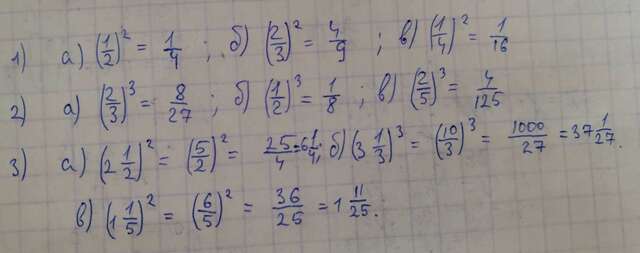 1) а) (1/2)² = 1/4 ; б) (2/3)² = 4/9 ; в) (1/4)² = 1/16
2) а) (2/3)³ = 8/27 ; б) (1/2)³ = 1/8 ; в) (2/5)³ = 4/125
3) а) (2 1/2)² = (5/2)² = 25/4 = 6 1/4 ; б) (3 1/3)³ = (10/3)³ = 1000/27 = 37 1/27.
в) (1 1/5)² = (6/5)² = 36/25 = 1 11/25.